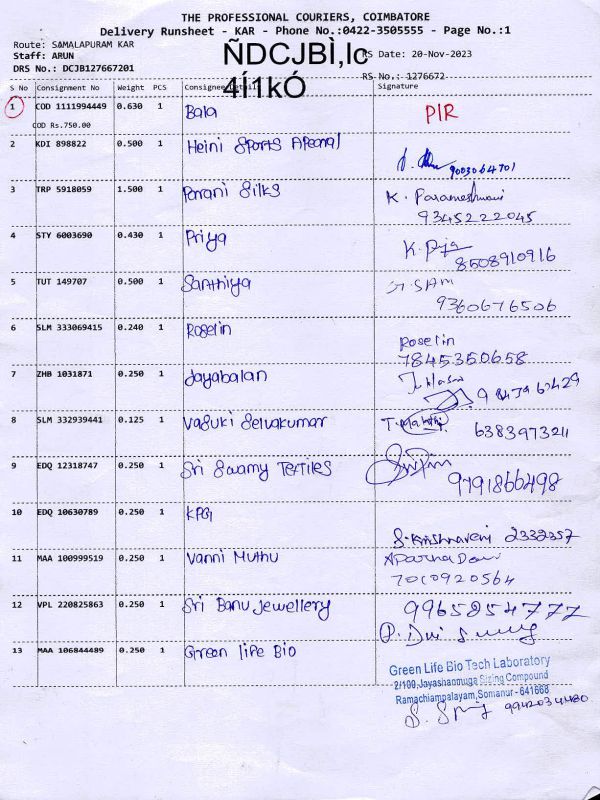 THE PROFESSIONAL COURIERS, COIMBATORE
Delivery Runsheet - KAR - Phone No.:0422-3505555 - Page No.:1
Route: SAMALAPURAM KAR
Staff: ARUN
DRS No.: DCJB127667201
ÑDCJBÌ,Ic
4Í1kÓ
RS Date: 20-Nov-2023
RS No.: 1276672
S No Consignment No Weight PCS Consignee Details Signature
1 COD 1111994449 0.630 1 Bala PIR
COD Rs.750.00
2 KDI 898822 0.500 1 Heini Sports Apeoral
9003064701
3 TRP 5918059 1.500 1 Parani Silks K. Parameshwari
9345222045
4 STY 6003690 0.430 1 Priya K. Priya
8508910916
5 TUT 149707 0.500 1 Santhiya
9360676506
6 SLM 333069415 0.240 1 Roselin Roselin
7845350658
7 ZHB 1031871 0.250 1 Jayabalan
8 SLM 332939441 0.125 1 Vasuki Selvakumar
6383973211
9 EDQ 12318747 0.250 1 Sri Swamy Textiles
9791866498
10 EDQ 10630789 0.250 1 KPG S. Krishnaveni 2332357
11 MAA 100999519 0.250 1 Vanni Muthu Aparna Devi
7010920564
12 VPL 220825863 0.250 1 Sri Banu Jewellery 9965254777
13 MAA 106844489 0.250 1 Green life Bio
Green Life Bio Tech Laboratory
2/100, Jayashanmuga Sizing Compound
Ramachiampalayam, Somanur - 641668
9942034480